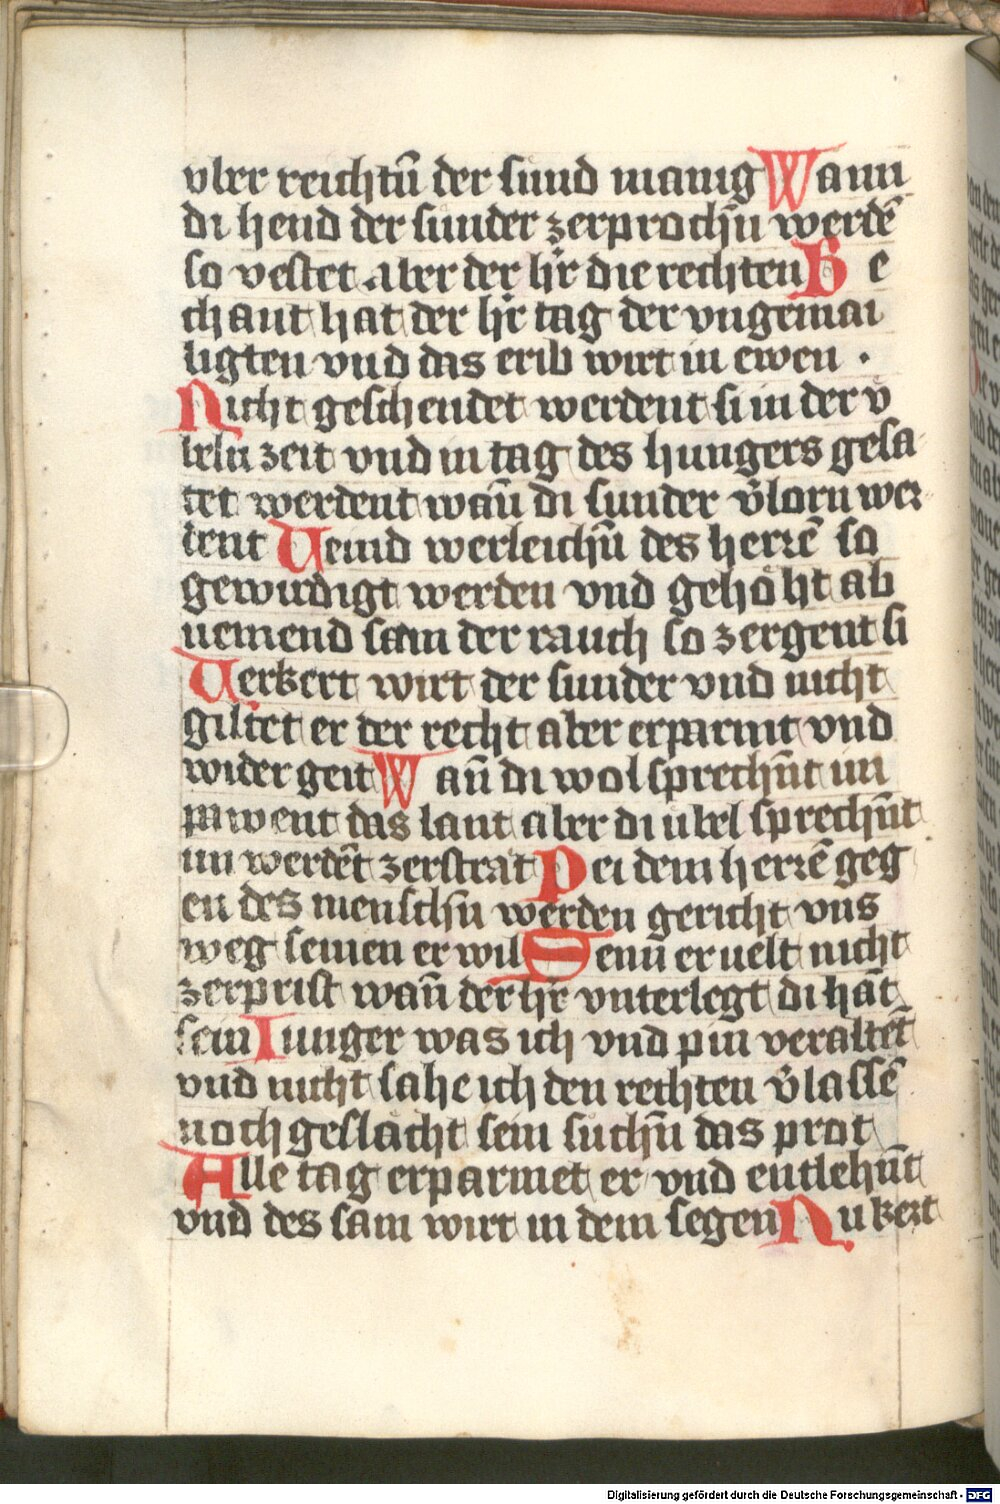 vber reichtū der sund manig Wann
di hend der sunder zerprochn̄ werdē
so vestet aber der hr̄ die rechten Be
chaut hat der hr̄ tag der vngemai
ligten vnd das erib wirt in ewen ·
Nicht geschendet werdent si in der v̈
beln zeit vnd in tag des hungers gesa
tet werdent wan̄ di sunder v̄lorn wer
dent Veind werleichn̄ des herrē so
gewirdigt werden vnd gehöht ab
nemend sam der rauch so zergent si
Verkert wirt der sunder vnd nicht
giltet er der recht aber erparmt vnd
wider geit Wan̄ di wol sprechn̄t im
pawent das lant aber di übel sprechn̄t
im werdēt zerstrat Pei dem herrē geg
en des menschn̄ werden gericht vns
weg seinen er wil Senn er velt nicht
zerprist wan̄ der hr̄ vnterlegt di hāt
sein Iunger was ich vnd pin veraltet̄
vnd nicht sahe ich den rechten v̄lassē
noch geslächt sein suchn̄ das prot
Alle tag erparmet er vnd entlehn̄t
vnd des sam wirt in dem segen Nu kert
Digitalisierung gefördert durch die Deutsche Forschungsgemeinschaft - DFG